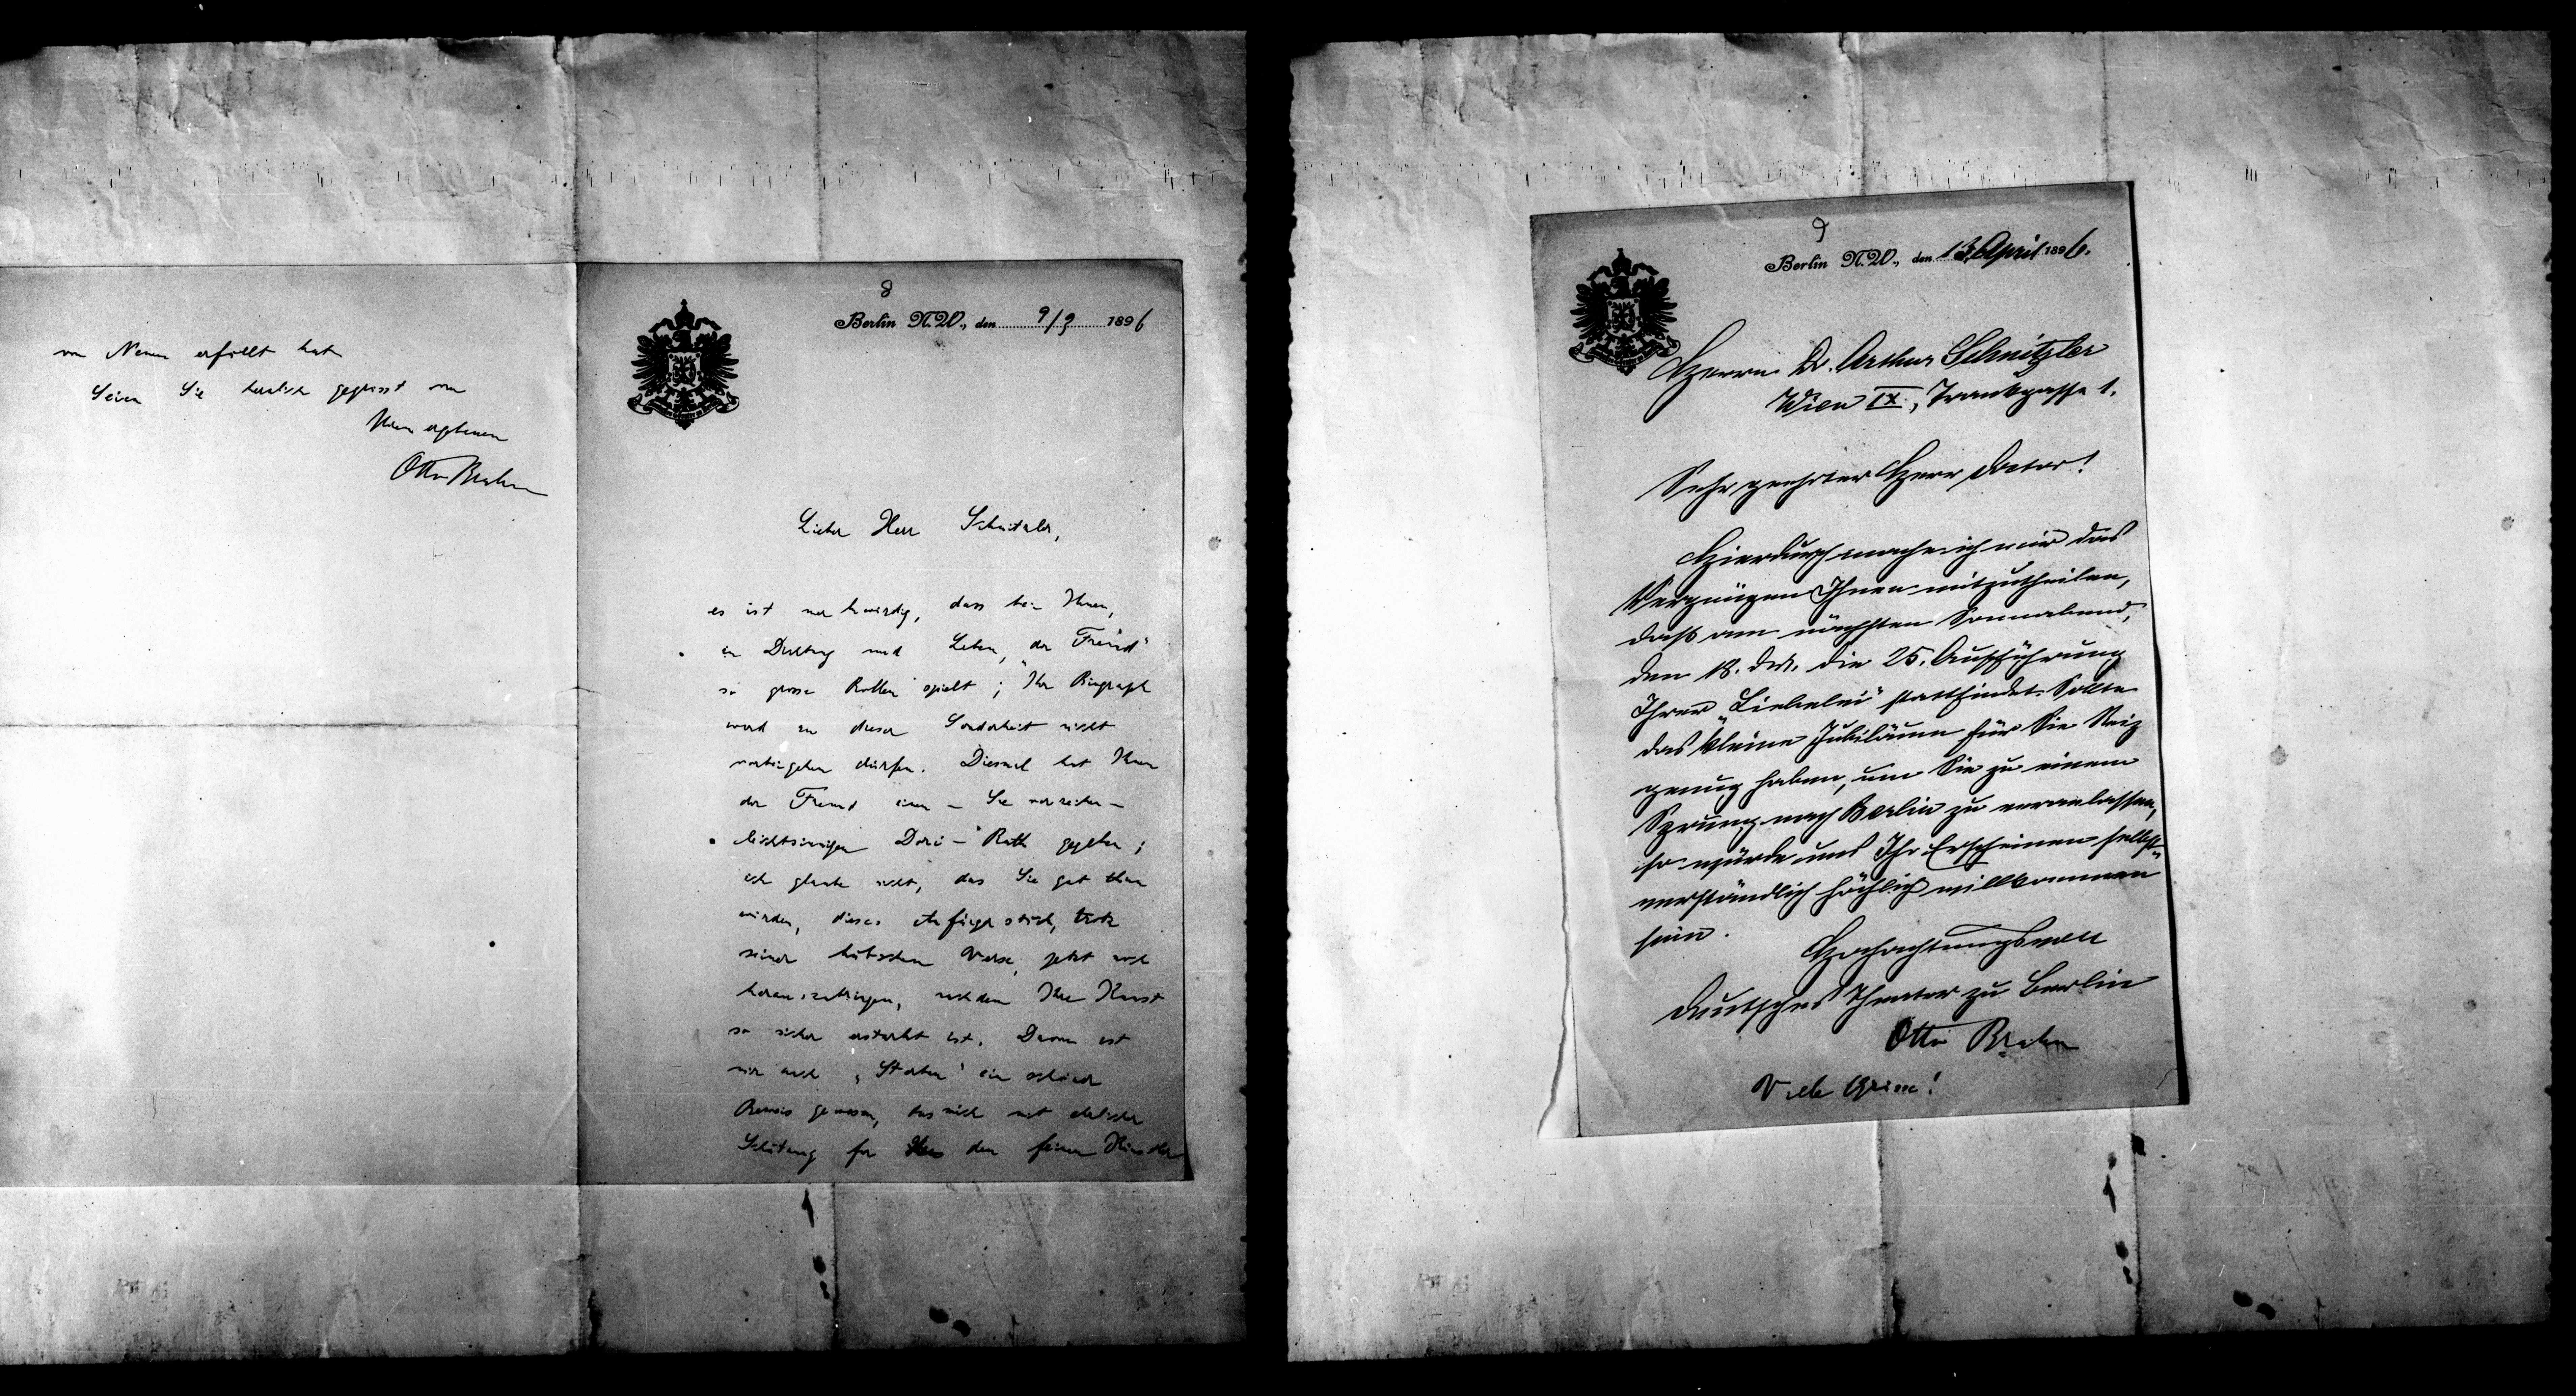 von Neuem erfüllt hat.
Seien Sie herzlich gegrüsst von
Ihrem ergebenen
Otto Brahm
8
Berlin N.W., den 9/3 1896
Lieber Herr Schnitzler,
es ist merkwürdig, dass bei Ihnen,
in Dichtung und Leben, „der Freund“
so grosse Rollen spielt; Ihr Biograph
wird an dieser Sonderheit nicht
vorbeigehen dürfen. Diesmal hat Ihnen
der Freund einen – Sie verzeihen –
leichtsinnigen Rath gegeben;
ich glaube nicht, dass Sie gut thun
würden, dieses Anfängerstück, trotz
seiner hübschen Verse, jetzt noch
herauszubringen, nachdem Ihre Kunst
so sicher erstarkt ist. Davon ist
mir auch „Sterben“ ein schöner
Beweis gewesen, das mich mit ehrlicher
Schätzung für den feinen Künstler
9
Berlin N.W., den 13. April 1896.
Herrn Dr. Arthur Schnitzler
Wien IX, Frankgasse 1.
Sehr geehrter Herr Doctor!
Hierdurch mache ich mir das
Vergnügen Ihnen mitzutheilen,
daß am nächsten Sonnabend,
den 18. ds. die 25. Aufführung
Ihrer „Liebelei“ stattfindet. Sollte
das kleine Jubiläum für Sie Reiz
genug haben, um Sie zu einem
Sprung nach Berlin zu veranlassen,
so würde uns Ihr Erscheinen selbst-
verständlich höchlich willkommen
sein.
Hochachtungsvoll
Deutsches Theater zu Berlin
Otto Brahm
Viele Grüsse!